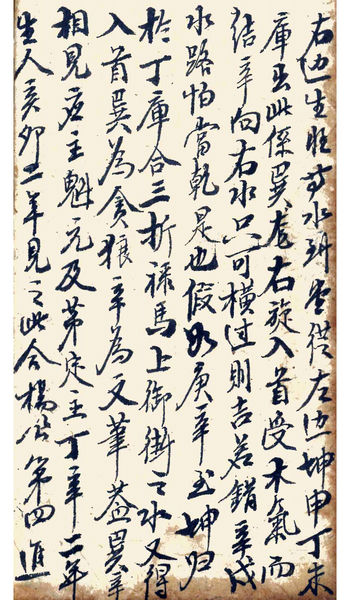 右边生旺方水到堂從左边坤申丁未
庫出此係巽龙右旋入首受木氣而
结辛向右水只可横过則吉若錯辛戌
水路怕當乾是也假如庚辛至坤归
於丁庫合三折禄馬上御街之水又得
入首巽為貪狼辛為文筆葢巽辛
相見应主魁元及第定主丁辛二年
生人亥卯二年見之此合楊公第四進